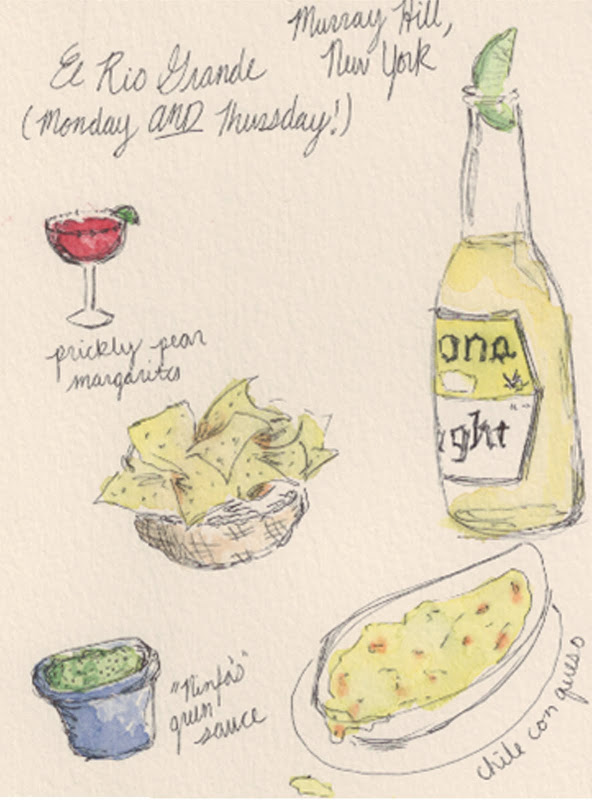 Murray Hill,
New York
El Rio Grande
(Monday AND Thursday!)
prickly pear
margaritas
ona
ight
"Ninfa's"
green
sauce
chile con queso